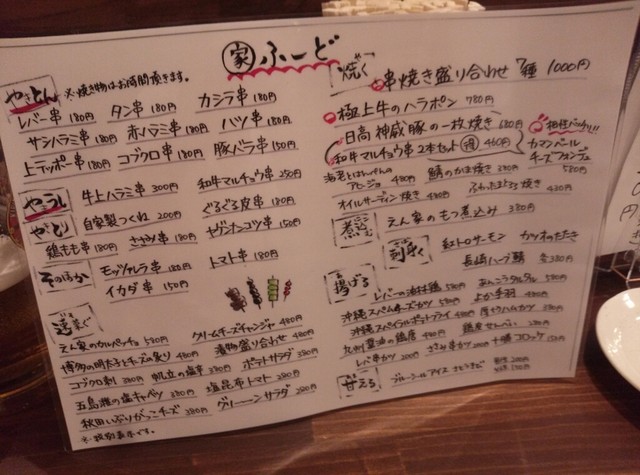 家 ふーど
やきとん ※焼き物はお時間頂きます。
レバー串 180円 タン串 180円 カシラ串 180円
サンハラミ串 180円 赤ハラミ串 180円 ハツ串 180円
上テッポー串 180円 コブクロ串 180円 豚バラ串 150円
やきうし 牛上ハラミ串 300円 和牛マルチョウ串 250円
やきとり 自家製つくね 200円 ぐるぐる皮串 180円
鶏もも串 180円 ささみ串 180円 ヤゲンナンコツ串 150円
そのほか モッツァレラ串 180円 トマト串 180円
イカダ串 150円
えん家のカルパッチョ 580円 クリームチーズチャンジャ 480円
博多の明たことチーズの炙り 480円 漬物盛り合わせ 480円
コブクロ刺し 380円 帆立の塩辛 380円 ポテトサラダ 380円
五島灘の塩キャベツ 380円 塩昆布トマト 280円
秋田いぶりがっこチーズ 380円 グリーーーンサラダ 280円
※税別表示です。
焼く 串焼き盛り合わせ 7種 1000円
極上牛のハラポン 780円
日高神威豚の一枚焼き 680円
和牛マルチョウ串2本セット 460円
相性バッチリ!!
カマンベール
チーズフォンデュ
580円
海老とはんぺんの
アヒージョ 480円 鯖のかま焼き 380円
オイルサーディン焼き 480円 ふわたまとろろ焼き 430円
煮込 えん家のもつ煮込み 380円
刺し 紅トロサーモン カツオのたたき
長崎ハーブ鯖 各380円
揚げる レバーの油林鶏 580円 あんこうタルタル 580円
沖縄スパムチーズカツ 580円 よか手羽 480円
沖縄スパイラルポテトフライ 480円 厚切りハムカツ 380円
九州醤油の鶏唐 480円 鶏皮せんべい 280円
レバ串カツ 200円 ささみ串カツ 200円 十勝コロッケ 150円
甘える ブルーシールアイス